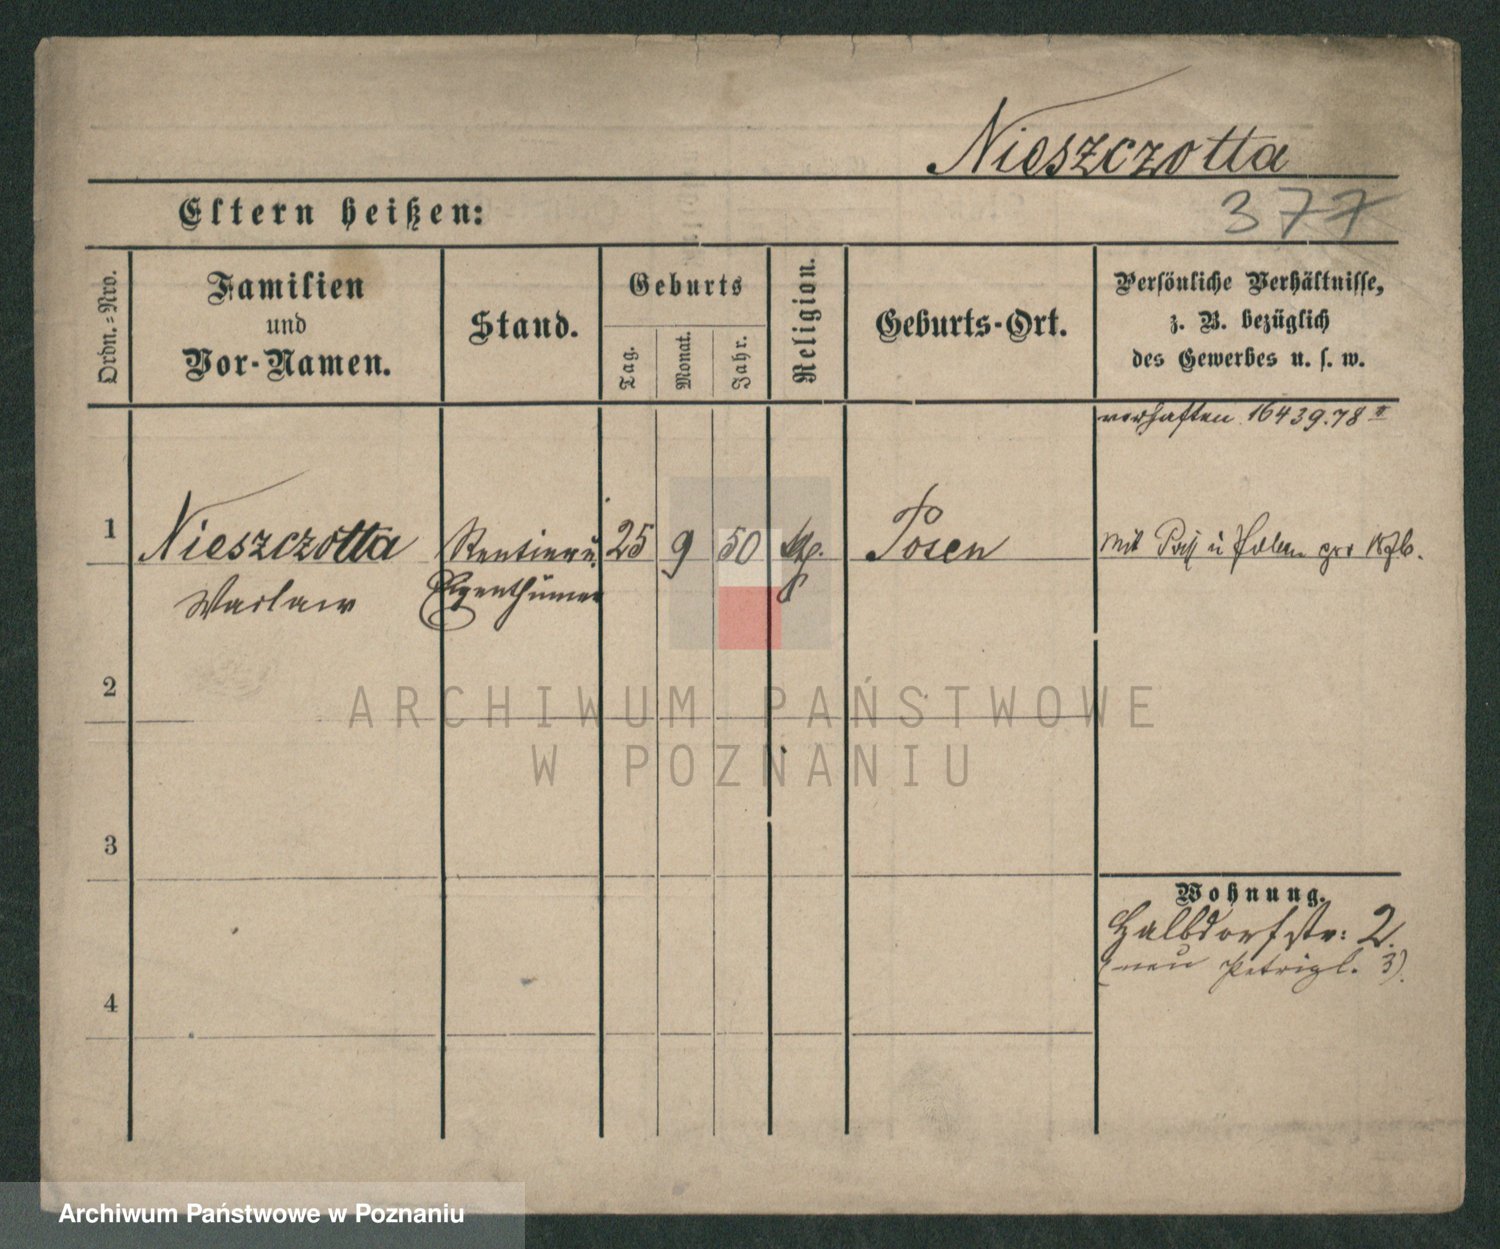 Nieszczotta
377
Eltern heißen:
Ordn.=Nro.
Familien
und
Vor-Namen.
Stand.
Geburts
Tag.
Monat.
Jahr.
Religion.
Geburts-Ort.
Persönliche Verhältnisse,
z. B. bezüglich
des Gewerbes u. s. w.
16439.78
1
Nieszczotta
Rentier u.
25
9
50
Posen
Mit Paß
Waclaw
Eigenthümer
2
ARCHIWUM PAŃSTWOWE
W POZNANIU
3
Wohnung.
Halbdorfstr: 2.
(neu Petripl. 3).
4
Archiwum Państwowe w Poznaniu